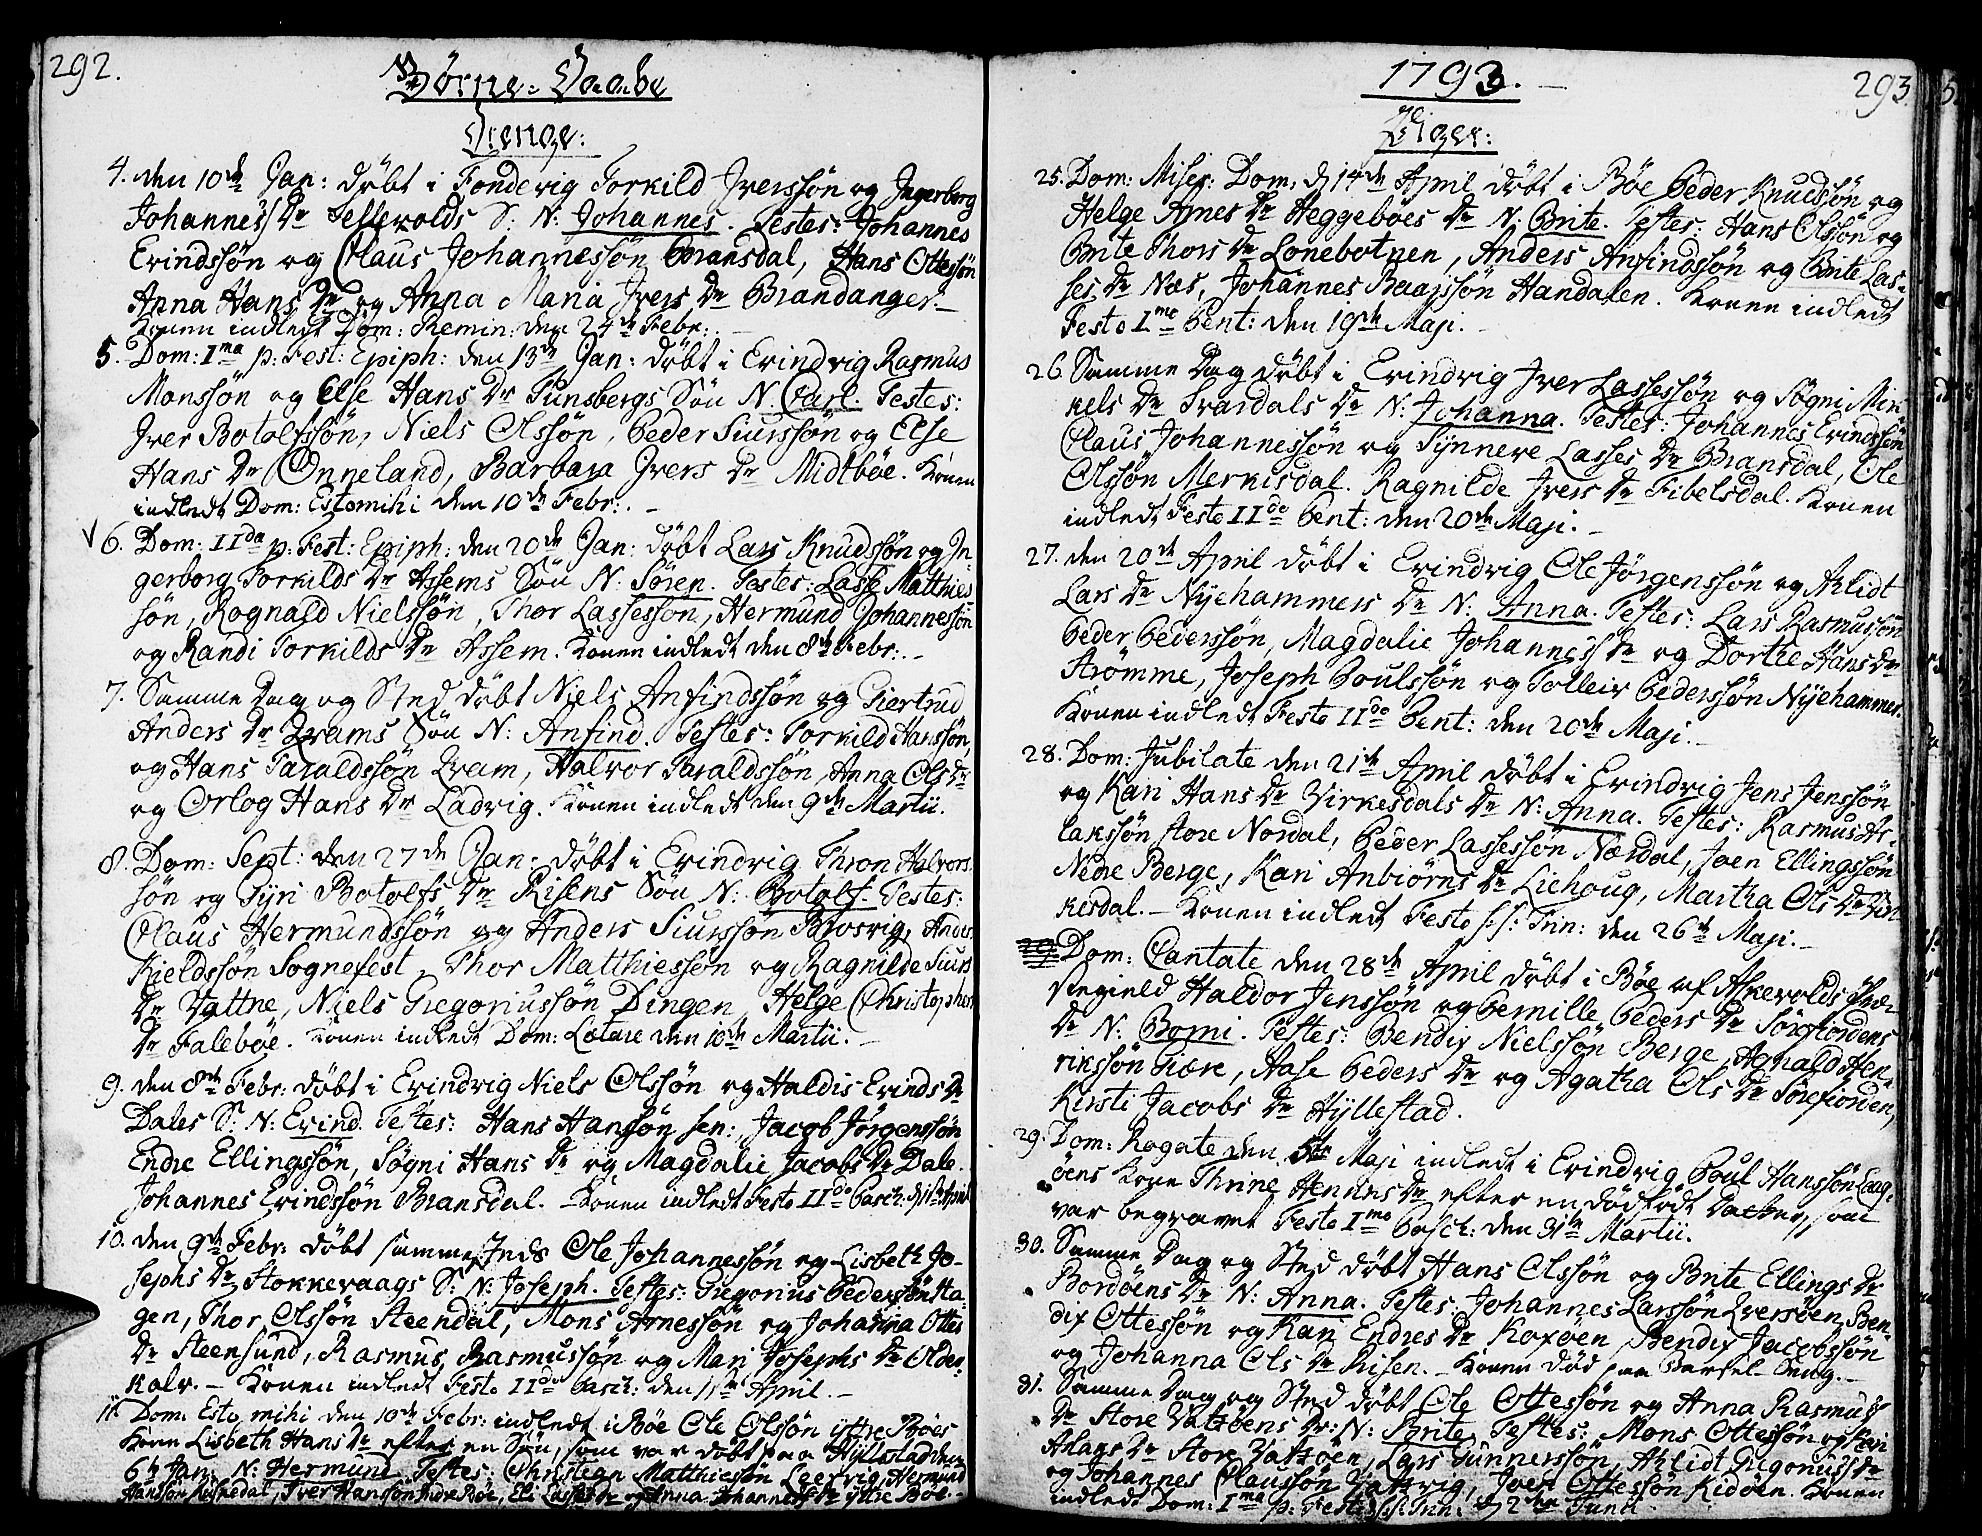 292.
Børne-Daabe
Drenge:
4. den 10de Jan: døbt i Fonderig Torkild Iverssøn og Ingerborg
Johannes Dr Tellevolds S: N: Johannes. Testes: Johannes
Erindssøn og Claus Johannessøn Bransdal, Hans Ottessøn
Anna Hans Dr og Anna Maria Ivers Dr Brandanger.
Konen indledt Dom: Remin: den 24de Febr:.
5. Dom: Ima p: Fest: Epiph: den 13de Jan: døbt i Evindvig Rasmus
Monssøn og Else Hans Dr Tunsbergs Søn N. Carl. Testes:
Iver Botolfssøn, Niels Olssøn, Peder Siurssøn og Else
Hans Dr Onneland, Barbara Ivers Dr Midtbøe. Konen
indledt Dom: Estomihi den 10de Febr:.
6. Dom: IIda p: Fest: Epiph: den 20de Jan: døbt Lars Knudssøn og In-
gerborg Torkilds Dr Assems Søn N: Søren. Testes: Lasse Matthies
søn, Rognald Nielssøn, Thor Lassessøn, Hermund Johannessøn
og Randi Torkilds Dr Assem. Konen indledt den 8de Febr:.
7. Samme Dag og Sted døbt Niels Anfindssøn og Giertrud
Anders Dr Qvams Søn N: Anfind. Testes: Torkild Hanssøn,
og Hans Taraldssøn Qvam, Halvor Taraldssøn, Anna Ols Dr
og Orlog Hans Dr Ladvig. Konen indledt den 9de Martii.
8. Dom: Sept: den 27de Jan: døbt i Evindvig Thron Halvors-
søn og Tyri Botolfs Dr Risens Søn N: Botolf. Testes:
Claus Hermundssøn og Anders Siurssøn, Anders
Kieldssøn Sognefest, Thor Matthiessøn og Ragnilde Siurs
Dr Vattne, Niels Gregoriussøn Dingen, Helge Christophers
Dr Falebøe. Konen indledt Dom: Lætare den 10de Martii.
9. den 8de Febr: døbt i Evindvig Niels Olssøn og Haldis Evinds Dr
Dales S: N: Evind. Testes: Hans Hanssøn sen:, Jacob Jørgenssøn
Endre Ellingssøn, Søgni Hans Dr og Magdalie Jacobs Dr Dale.
Johannes Erindssøn Bransdal. Konen indledt Festo IIdo Pasch: d 1te April
10. den 9de Febr: døbt sammesteds Ole Johannessøn og Lisbeth Jo-
sephs Dr Stokkevaags S: N: Joseph. Testes: Gregorius Pederssøn Ha-
gen, Thor Olssøn Steendal, Mons Arnessøn og Johanna Ottes
Dr Steensund, Rasmus Rasmussøn og Mari Josephs Dr Older-
kalv. Konen indledt Festo IIdo Pasch: den 1ste April.
11. Dom: Estomihi den 10de Febr: indledt i Bøe Ole Olssøn ittre Bøes
Kone Lisbeth Hans Dr efter en Søn, som var døbt paa Hyllestad den
6te Jan: N: Hermund. Testes: Christian Matthiessøn Leervig, Hermund
Hanssøn, Iver Hanssøn Indre Bøe, Eli Lasses Dr og Anna Johannes Dr ittre Bøe.
1793.
293
Piger:
25. Dom: Miser: Dom, d 14de April døbt i Bøe Peder Knudssøn og
Helge Arnes Dr Heggebøes Dr N: Brite. Testes: Hans Olssøn og
Brite Thors Dr Lonebotnen, Anders Anfindssøn og Brite Las-
ses Dr Næs, Johannes Baarssøn Handalen. Konen indledt
Festo Imo Pent: den 19de Maji.
26. Samme Dag døbt i Evindvig Iver Lassessøn og Søgni Mik-
kels Dr Svardals Dr N: Johanna. Testes: Johannes Erindssøn
Claus Johannessøn og Synneve Lasses Dr Bransdal, Ole
Olssøn Merkisdal. Ragnilde Ivers Dr Fibelsdal. Konen
indledt Festo IIdo Pent: den 20de Maji.
27. den 20de April døbt i Evindvig Ole Jørgenssøn og Aklidt
Lars Dr Nyehammers Dr N: Anna. Testes: Lars Rasmussøn
Peder Pederssøn, Magdalie Johannes Dr og Dorthe Hans Dr
Strømme, Joseph Poulssøn og Tolleiv Pederssøn Nyehammer.
Konen indledt Festo IIdo Pent: den 20de Maji.
28. Dom: Jubilate den 21de April døbt i Evindvig Jens Jenssøn
og Kari Hans Dr Virkesdals Dr N: Anna. Testes: Rasmus As-
lakssøn store Nordal, Peder Lassessøn Nordal, Joen Ellingssøn
Nedre Berge, Kari Anbiørns Dr Liehoug, Martha Ols Dr Vir-
kesdal. Konen indledt Festo S: S: Trin: den 26de Maji.
29. Dom: Cantate den 28de April døbt i Bøe af Akevolds Præ-
stegield Haldor Jenssøn og Pernille Peders Dr Sørefiordens
Dr N: Bomi. Testes: Bendix Nielssøn Berge, Agnald Hen-
rikssøn Tiøre, Aase Peders Dr og Agatha Ols Dr Sørefiorden,
Kirsti Jacobs Dr Hyllestad.
29. Dom: Rogate den 5te Maji indledt i Evindvig Poul Hanssøn Laag-
øens Kone Thrine Henriks Dr efter en dødfødt Datter, som
var begravet Festo Imo Pasch: den 31te Martii.
30. Samme Dag og Sted døbt Hans Olssøn og Brite Ellings Dr
Bordøens Dr N: Anna. Testes: Johannes Larssøn Qversøen, Ben-
dix Ottessøn og Kari Endres Dr Koxøen, Bendix Jacobssøn
og Johanna Ols Dr Risen. Konen død paa Barsel-Seng.
31. Samme Dag og Sted døbt Ole Ottessøn og Anna Rasmus
Dr Store Vatsøens Dr: N: Brite. Testes: Mons Ottessøn og Kari
Dr Store Vatsøen, Lars Gunnerssøn, Aklidt Gregorius Dr
og Johannes Claussøn, Iver Ottessøn Kidøen. Konen
indledt Dom: Ima p: Fest: S: S: Trin: d 2den Junii